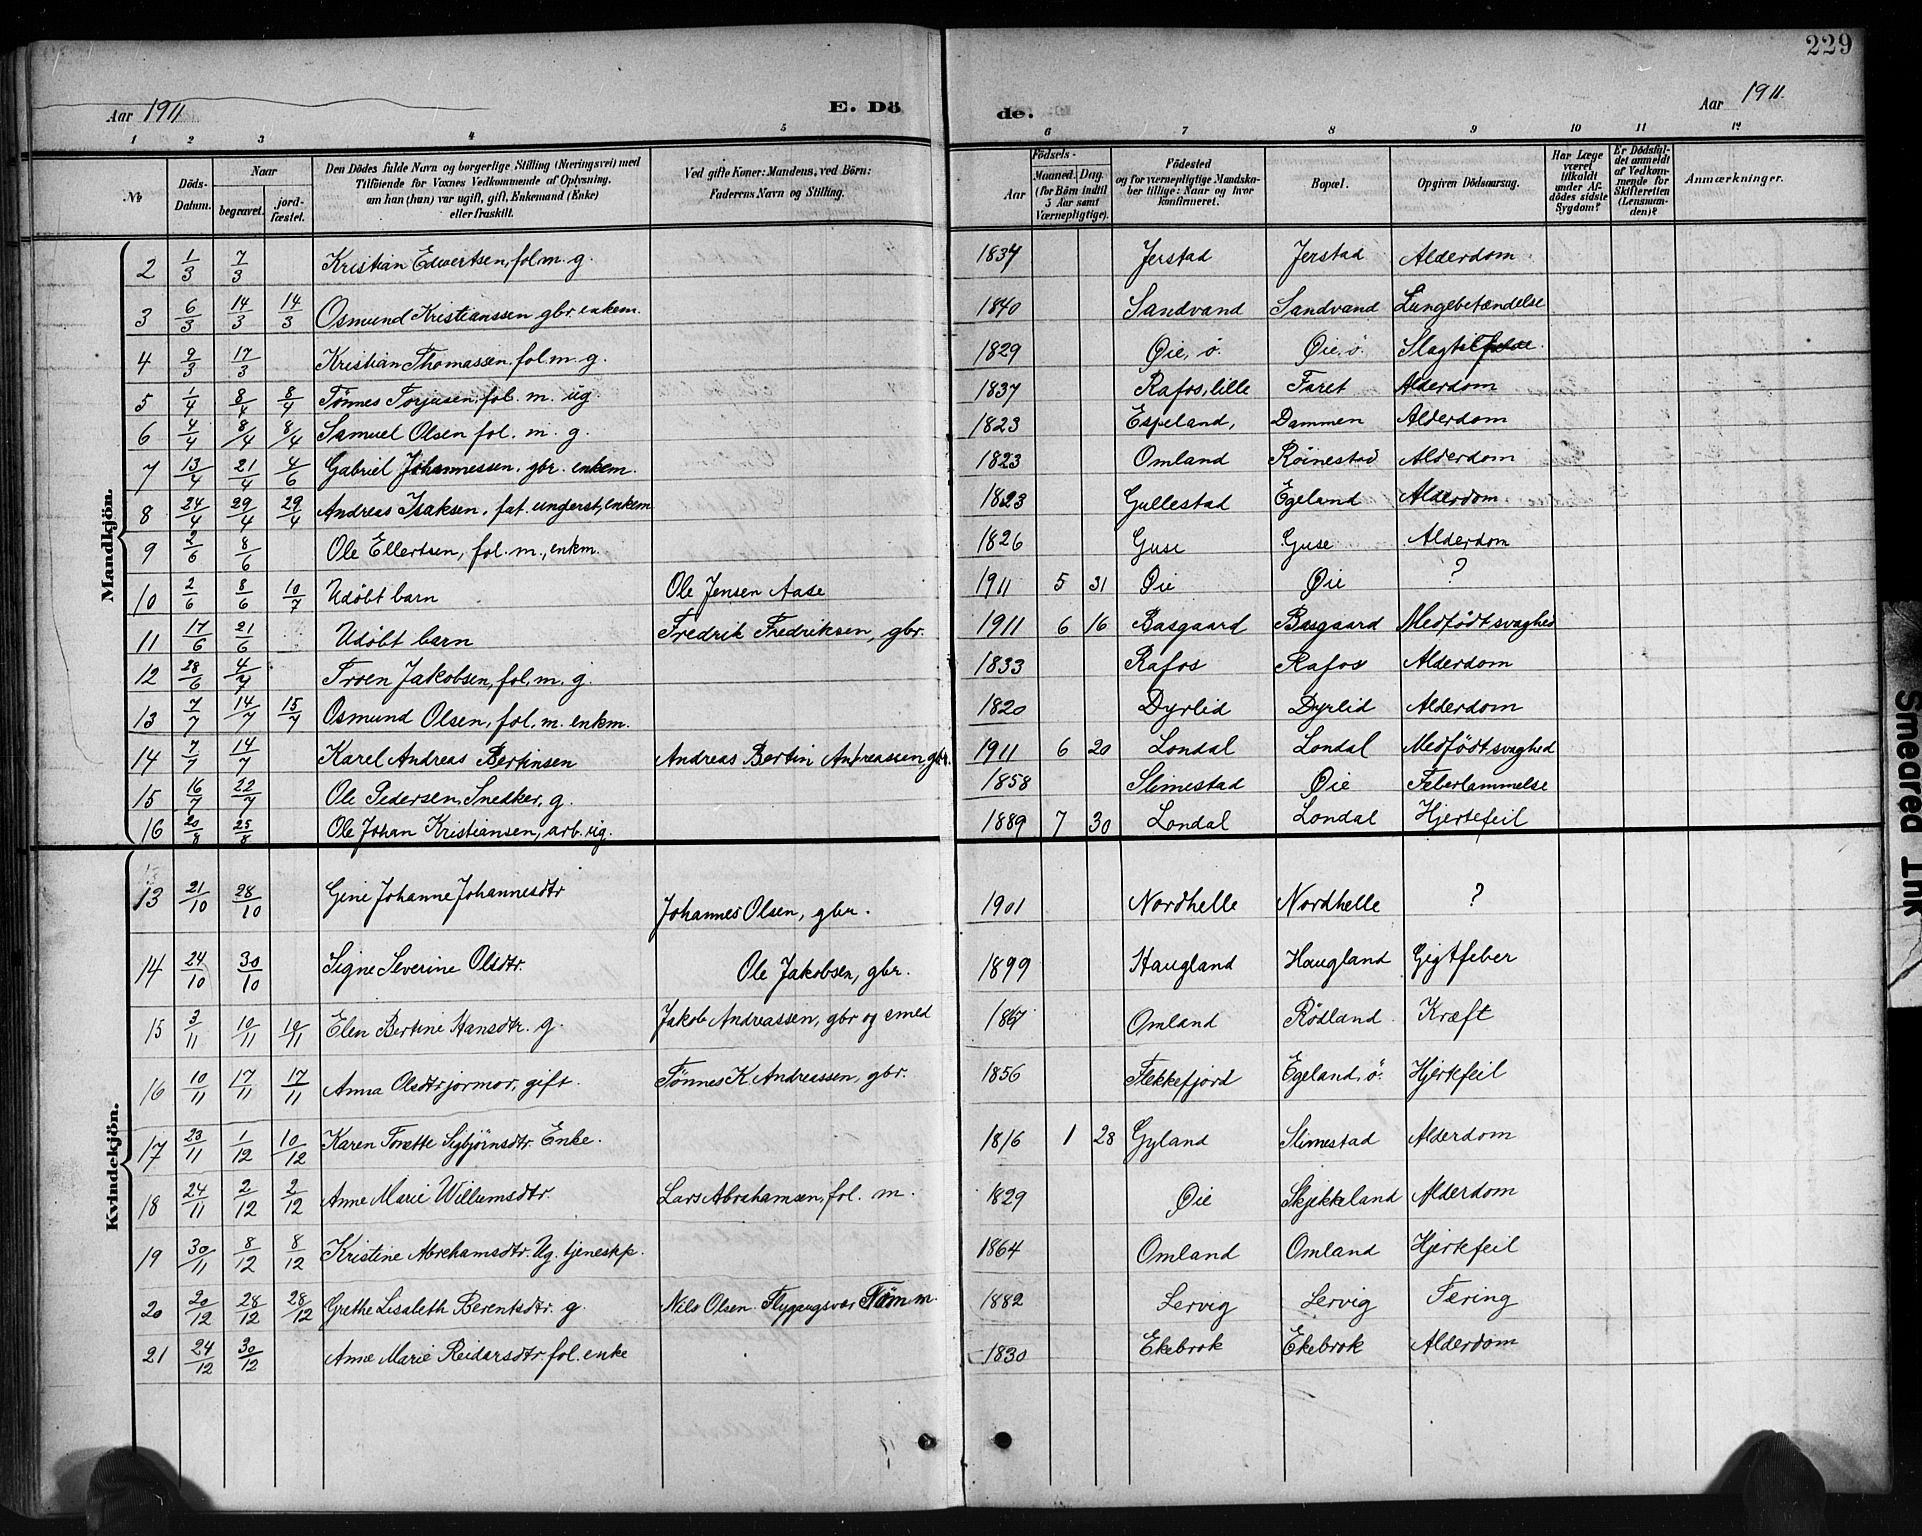 229
Aar 1911 E. Dö de. Aar 1911.
1 2 3 4 5 6 7 8 9 10 11 12
№ Döds-Datum. Naar begravet. jord-fæstet. Den Dödes fulde Navn og borgerlige Stilling (Næringsvei) med Tilföiende for Voxnes Vedkommende af Oplysning, om han (hun) var ugift, gift, Enkemand (Enke) eller fraskilt. Ved gifte Koner: Mandens, ved Börn: Faderens Navn og Stilling. Födsels- Aar Maaned. Dag. (for Börn indtil 3 Aar samt Værnepligtige). Födested og for værnepligtige Mandskaber tillige: Naar og hvor konfirmeret. Bopæl. Opgiven Dödsaarsag. Har Læge været tilkaldt under Afdödes sidste Sygdom? Er Dödsfaldet anmeldt af Vedkommende for Skifteretten (Lensmanden)? Anmærkninger.
Mandkjön.
2 1/3 7/3 Kristian Edvertsen, fol.m. g. 1834 Jerstad Jerstad Alderdom
3 6/3 14/3 14/3 Osmund Kristianssen gbr. enkem. 1840 Sandvand Sandvand Lungebetændelse
4 9/3 17/3 Kristian Thomassen, fol.m. g. 1829 Øie, ö. Øie, ö. Slagtilfelde.
5 1/4 8/4 8/4 Tønnes Torjusen, fol. m. ug 1837 Rafos, lille Faret Alderdom
6 4/4 8/4 8/4 Samuel Olsen fol. m. g. 1823 Espeland, Dammen Alderdom
7 13/4 21/4 4/6 Gabriel Johannessen, gbr. enkem. 1823 Omland Röinestad Alderdom
8 24/4 29/4 29/4 Andreas Isaksen, fat. underst, enkem 1823 Gullestad Egeland Alderdom
9 2/6 8/6 Ole Ellertsen, fol. m., enkm. 1826 Guse Guse Alderdom
10 2/6 8/6 10/7 Udöbt barn Ole Jensen Aase 1911 5 31 Øie Øie ?
11 17/6 21/6 Udöbt barn Fredrik Fredriksen, gbr. 1911 6 16 Basgaard Basgaard Medfödt svaghed
12 28/6 4/7 Troen Jakobsen, fol. m. g. 1833 Rafos Rafos Alderdom
13 7/7 14/7 15/7 Osmund Olsen, fol. m. enkm. 1820 Dyrlid Dyrlid Alderdom
14 7/7 14/7 Karel Andreas Bertinsen Andreas Bertin Andreassen, gbr. 1911 6 20 Londal Londal Medfödt svaghed
15 16/7 22/7 Ole Pedersen, Snedker, g. 1858 Slimestad Øie Feberlammelse
16 20/8 25/8 Ole Johan Kristiansen, arb. ug. 1889 7 30 Londal Londal Hjertefeil
Kvindekjön.
13 21/10 28/10 Gine Johanne Johannesdtr Johannes Olsen, gbr. 1901 Nordhelle Nordhelle ?
14 24/10 30/10 Signe Severine Olsdtr. Ole Jakobsen, gbr. 1899 Haugland Haugland Gigtfeber
15 3/11 10/11 10/11 Elen Bertine Hansdtr. g. Jakob Andreassen, gbr og smed 1867 Omland Rödland Kræft
16 10/11 17/11 17/11 Anna Olsdtr jormor, gift. Tönnes K Andreassen, gbr. 1856 Flekkefjord Egeland, ö. Hjertfeil
17 23/11 1/12 10/12 Karen Torette Sigbjörnsdtr. Enke. 1816 1 28 Gyland Slimestad Alderdom
18 24/11 2/12 2/12 Anne Marie Willumsdtr. Lars Abrahamsen, fol. m. 1829 Øie Skjekkeland Alderdom
19 30/11 8/12 8/12 Kristine Abrehamsdtr. Ug. tjenestp. 1864 Omland Omland Hjertfeil
20 20/12 28/12 28/12 Grethe Lisabeth Berentsdtr. g. Nils Olsen Töm.m. 1882 Lervig Lervig Tering
21 24/12 30/12 Anne Marie Reidarsdtr. fol. enke 1830 Ekebrok Ekebrok Alderdom
Smeared Ink